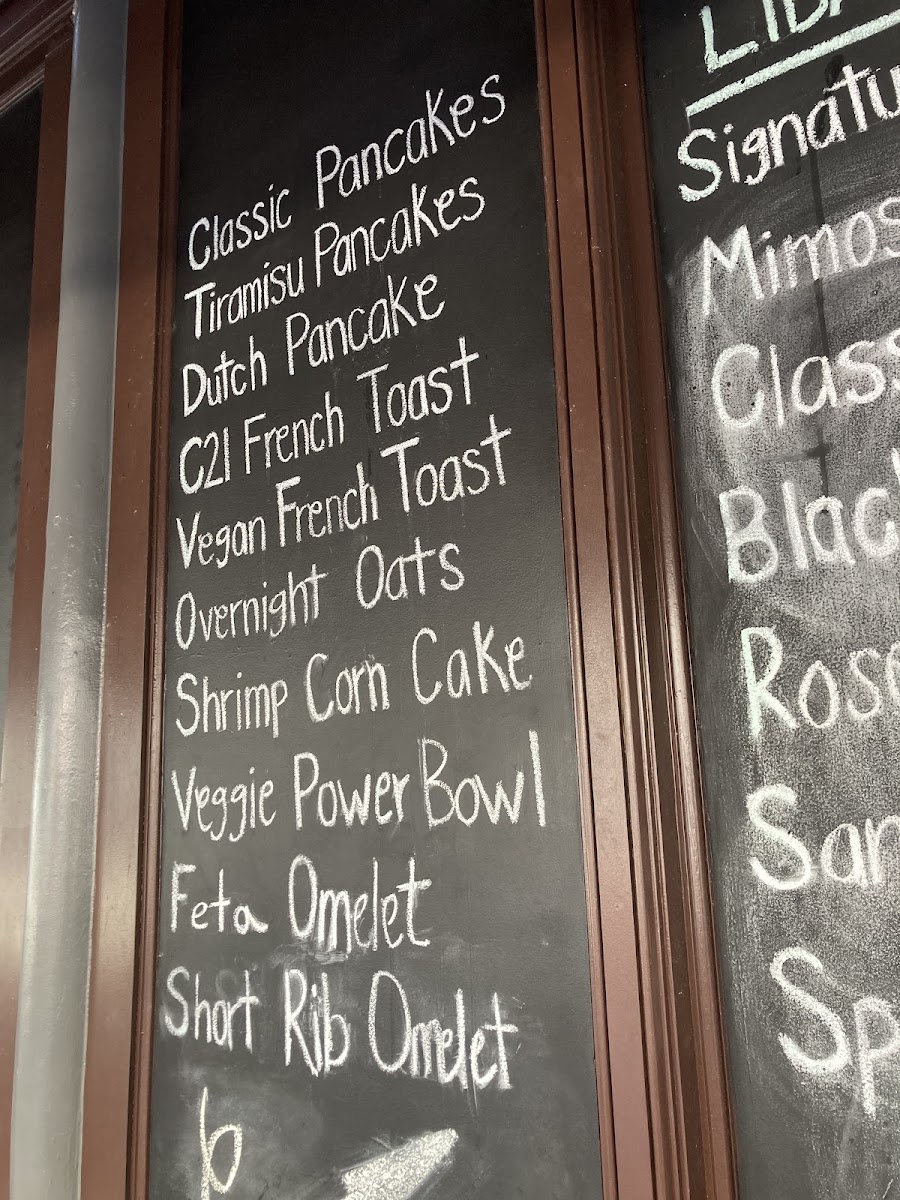 Classic Pancakes
Tiramisu Pancakes
Dutch Pancake
C21 French Toast
Vegan French Toast
Overnight Oats
Shrimp Corn Cake
Veggie Power Bowl
Feta Omelet
Short Rib Omelet
b
LIBA
Signatu
Mimos
Class
Black
Rose
San
Sp